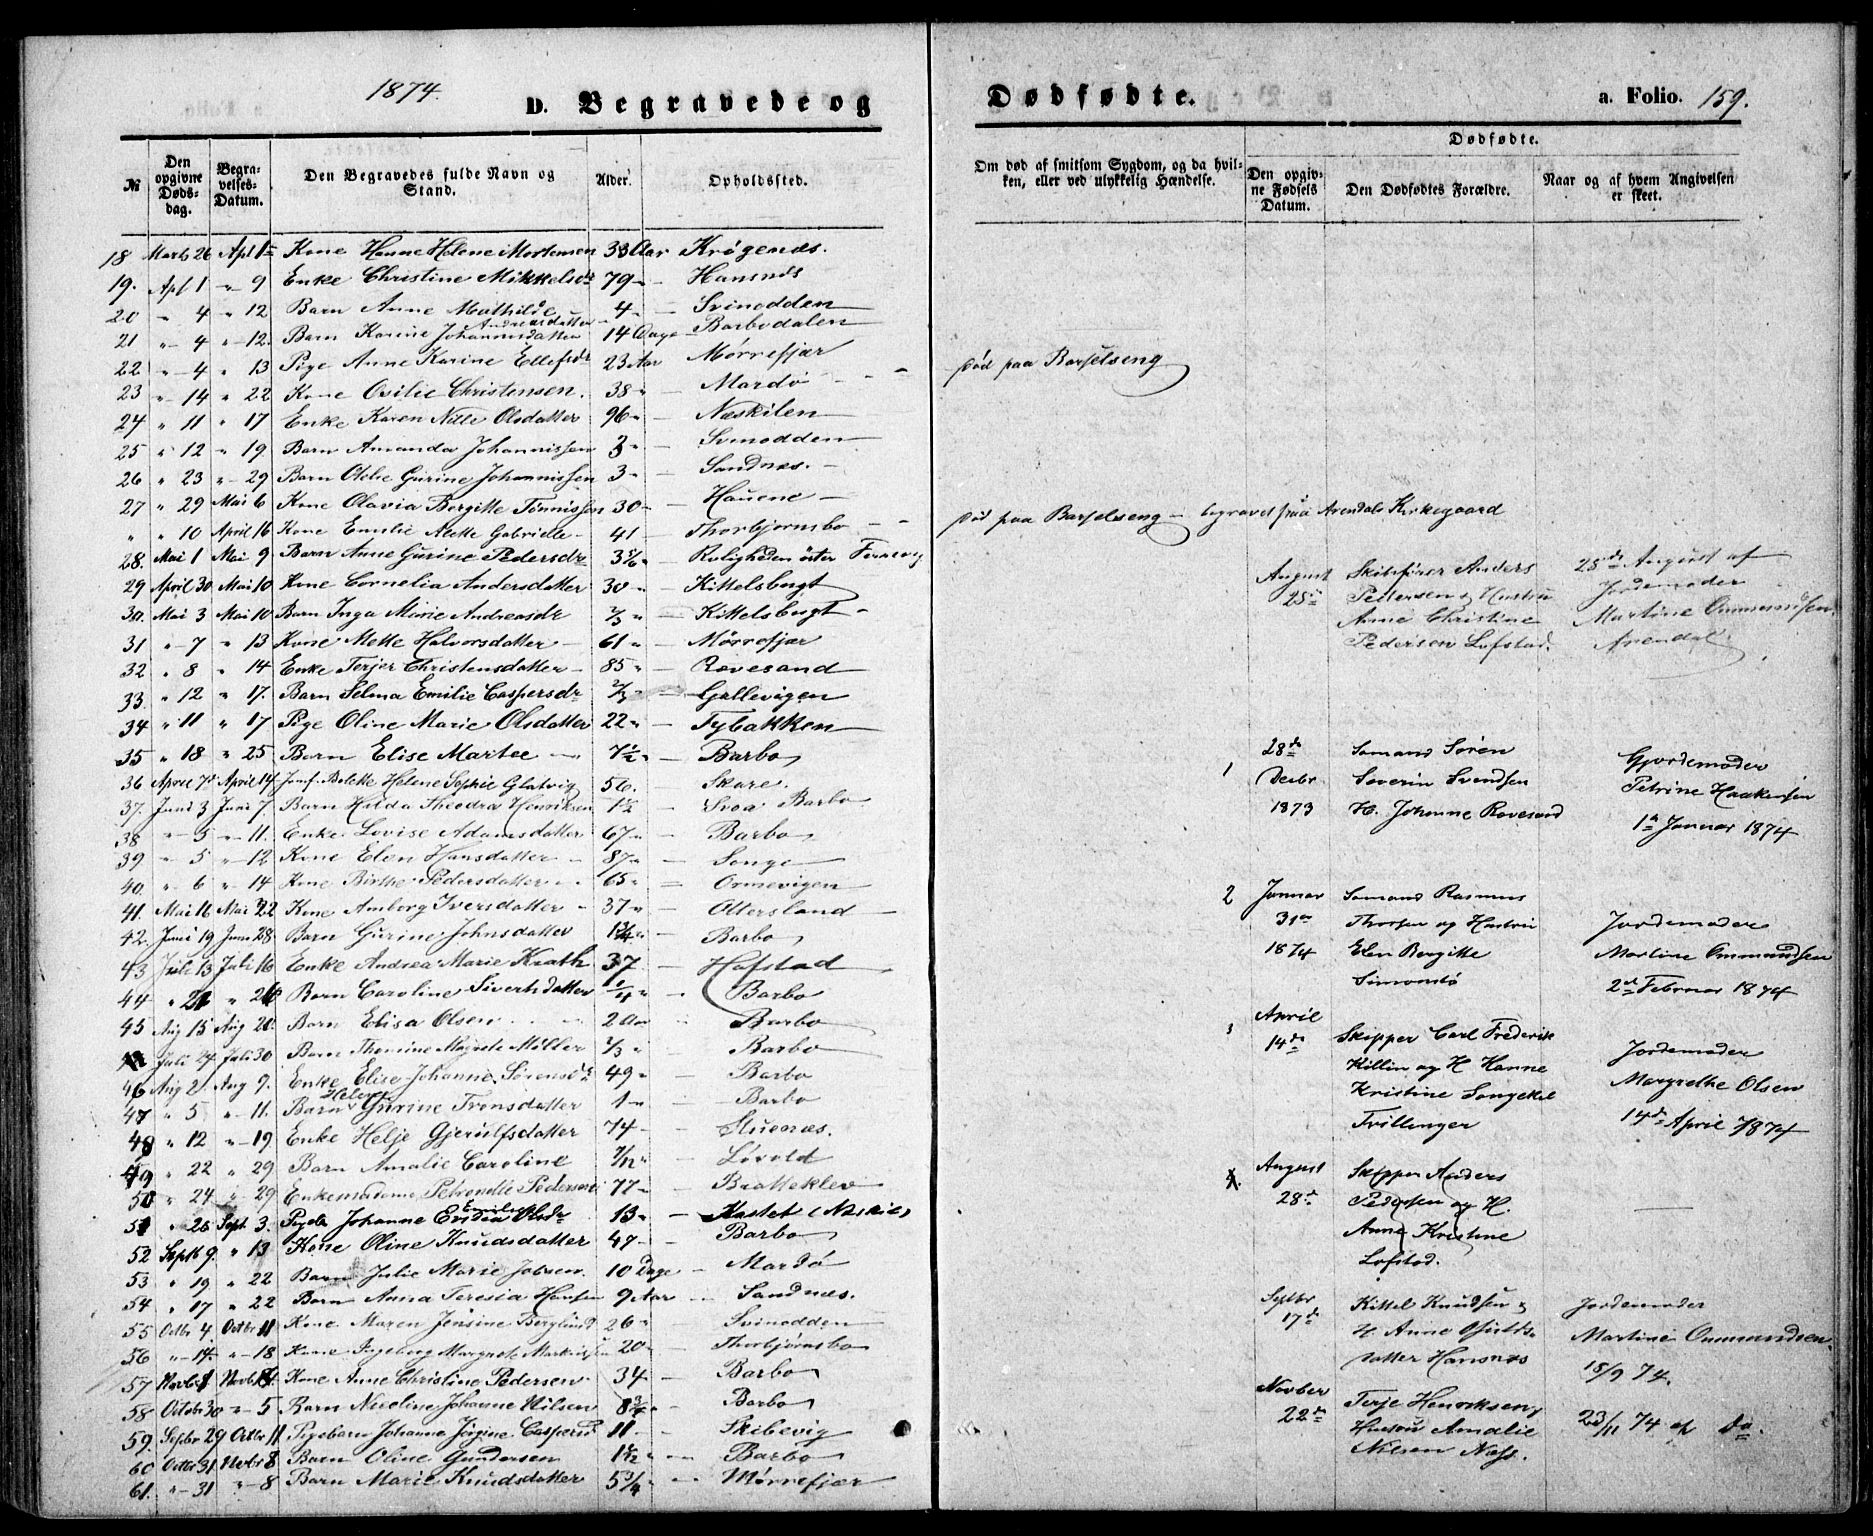 1874.
D. Begravede og
Dødfødte.
a. Folio. 159.
№
Den opgivne Døds-dag.
Begra-velses-Datum.
Den Begravedes fulde Navn og Stand.
Alder.
Opholdssted.
Om død af smitsom Sygdom, og da hvil-ken, eller ved ulykkelig Hændelse.
Dødfødte.
Den opgiv-ne Fødsels Datum.
Den Dødfødtes Forældre.
Naar og af hvem Angivelsen er skeet.
18 Marts 26 Apl 1 Kone Hanne Helene Mortensen 33 Aar Krøgenæs.
19. Apl 1 " 9 Enke Christine Mikkelsdr 79 " Hansnæs
20 " 4 " 12 Barn Anne Mathilde 4 " Svinodden
Andreasdatter
21 " 4 " 12. Barn Karine Johannisdatter 14 Dage Barbodalen
22 " 4 " 13 Pige Anne Karine Ellefsdr 23 Aar Mørrefjær
23 " 14 " 22 Kone Osilie Christensen. 38 " Mardø
død paa Barselseng
24 " 11 " 17 Enke Karen Nille Olsdatter 96 " Næskilen
25 " 12 " 19. Barn Amanda Johannissen 3 " Svinodden
26 " 23 " 29 Barn Gurine Johannissen 3 " Sandnæs.
27 " 29 Mai 6 Kone Olavia Bergitte Tønnissen 30 " Hauene
" " 10 April 16 Kone Emilie Alette Gabrielle 41 Thorbjørnsbo
død paa Barselseng begravet paa Arendals Kirkegaard
28. Mai 1 Mai 9 Barn Anne Gurine Pedersdr Roligheden øster
29 April 30 Mai 10 Kone Cornelia Andersdatter 30 " Kittelsbugt
30. Mai 3 Mai 10 Barn Inga Marie Andreasdr 2/3 " Kittelsbugt
31 " 7 " 13 Kone Mette Halvorsdatter 61 " Mørrefjær
32 " 8 " 14 Enke Terjer Christensdatter 85 " Rovesand
33. " 12 " 17. Barn Selma Emilie Caspersdr Gullevigen
34 " 11 " 17 Pige Oline Marie Olsdatter 22 " Tybakken
35 " 18 " 25 Barn Elise Martee 7½ " Barbo
36 April 7d April 14 Jomf. Bolette Helene Sophie Glatvig 56. Skare.
37. Juni 3 Juni 7. Barn Hilda Theodra Henriksen 1½ Svoa Barbo
38 " 5 " 11. Enke Lovise Adamsdatter 67 " Barbo
39 " 5 " 12 Kone Elen Hansdatter 87 " Songe
40. " 6 " 14 Kone Birthe Pedersdatter 65 " Ormevigen
41. Mai 16 Mai 22 Kone Amborg Iversdatter 37 " Ottersland
42. Juni 19 Juni 28. Barn Gurine Johnsdatter Barbo
43 Juli 13 Juli 16 Enke Andrea Marie Krath 37 Hofstad
44 " 21 " 26 Barn Caroline Sivertsdatter ¼ " Barbo
45 Aug 15 Aug 20. Barn Elisa Olsen 2 Aar Barbo
Juli 24 Juli 30 Barn Thomine Magrete Møller 2/3 " Barbo
46 Aug 2 Aug 9. Enke Elise Johanne Sørensdr 49 " Barbo
Helene
47 " 5 " 11. Barn Gurine Tronsdatter 1 " Barbo
48 " 12 " 19 Enke Helje Gjerulfsdatter 74 " Stuenæs.
49 " 22 " 29 Barn Amalie Caroline 7/12 " Løvold
50 " 24 " 29 Enkemadame Petronelle Pedersen 77 " Bratteklev
51 " 28 Sept. 3. Pigeb. Johanne Olsdr 13 " Kastet (Næskil)
52 Septb 9. " 13 Kone Oline Knudsdatter 47 " Barbo
53 " 19 " 22 Barn Julie Marie Jobsen. 10 Dage Mardø
54 " 17 " 22 Barn Anna Teresia Hansen 9 Aar Sandnæs.
55 Octbr 4. Octbr 11 Kone Maren Jensine Berglund 26 " Svinodden
56 " 14. " 18 Kone Ingeborg Margrete Markussen 20 " Thorbjørnsbo
57 Novbr 1 Novbr Kone Anne Christine Pedersen 34 Barbo
58 Octobr 30 " 5 Barn Nicoline Johanne Nilsen 8¾ " Barbo
59. Sepbr 29 Octbr 11 Pigebarn Johanne Jørgine Caspersd 11 Skibevig
60 Octbr 31 Novbr 8 Barn Oline Gundersen Barbo
61. " 31 " 8 Barn Marie Knudsdatter 5¾ " Mørrefjær
August 25de Skibsfører Anders Pedersen & Hustru Anne Christine Pedersen Lofstad.
25de August af Jordemoder Martine Ommundsen Arendal
1 28de Decbr 1873 Somand Søren Severin Svendsen H. Johanne Rovesand
Gjordemoder Petrine Haakensen 1ste Januar 1874
2 Januar 31te 1874 Somand Rasmus Thorsen og Hustru Elen Bergitte Simonstø
Jordemoder Martine Ommundsen 2d Februar 1874
3 April 14de Skipper Carl Frederik Killin og H Hanne Kristine Songekil Tvillinger
Jordemoder Margrethe Olsen 14de April 1874
4. August 28de Skipper Anders Pedersen og H. Anne Kristine Lofstad.
Septbr 17de Kittel Knudsen & H Anne datter Hansnæs
Jordemoder Martine Ommundsen. 18/9 74.
Novber 22de Terje Henriksen Hustru Amalie Nilsen Næss.
23/11 74 af Do.